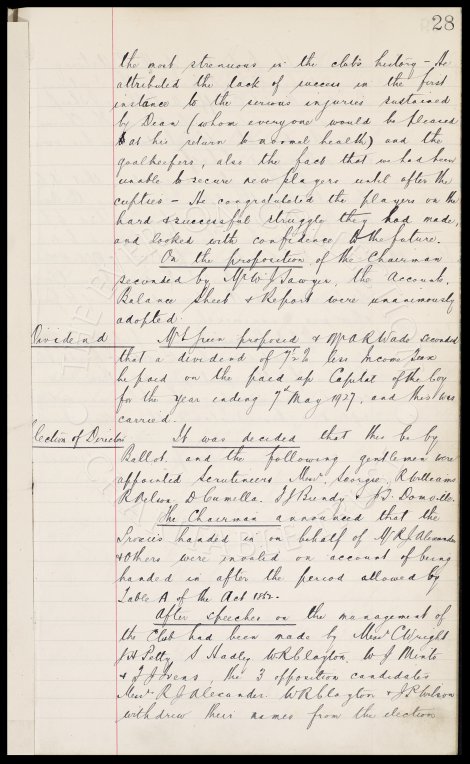 28
the most strenuous in the club's history - He
attributed the lack of success in the first
instance to the serious injuries sustained
by Dean (whom everyone would be pleased
at his return to normal health) and the
goalkeepers, also the fact that we had been
unable to secure new players until after the
cupties - He congratulated the players on the
hard & successful struggle they had made,
and looked with confidence to the future.
On the proposition of the Chairman
seconded by Mr W J Sawyer, the Accounts,
Balance Sheet & Report were unanimously
adopted.
Dividend Mr Green proposed & Mr A R Wade seconded
that a dividend of 7½% less Income Tax
be paid on the paid up Capital of the Coy
for the Year ending 7th May 1927, and this was
carried.
Election of Directors It was decided that this be by
Ballot and the following gentlemen were
appointed Scrutineers Messrs R Williams
R Nelson, D Cumella, & Domville.
The Chairman announced that the
Proxies handed in on behalf of Mr R J Alexander
& Others were invalid on account of being
handed in after the period allowed by
Table A of the Act 1862.
After speeches on the management of
the Club had been made by Messrs C Wright
J H Petty, S Hadley, W R Clayton, W J Minto
& T J Evens, the 3 opposition candidates
Messrs R J Alexander, W R Clayton & J P Wilson
withdrew their names from the election